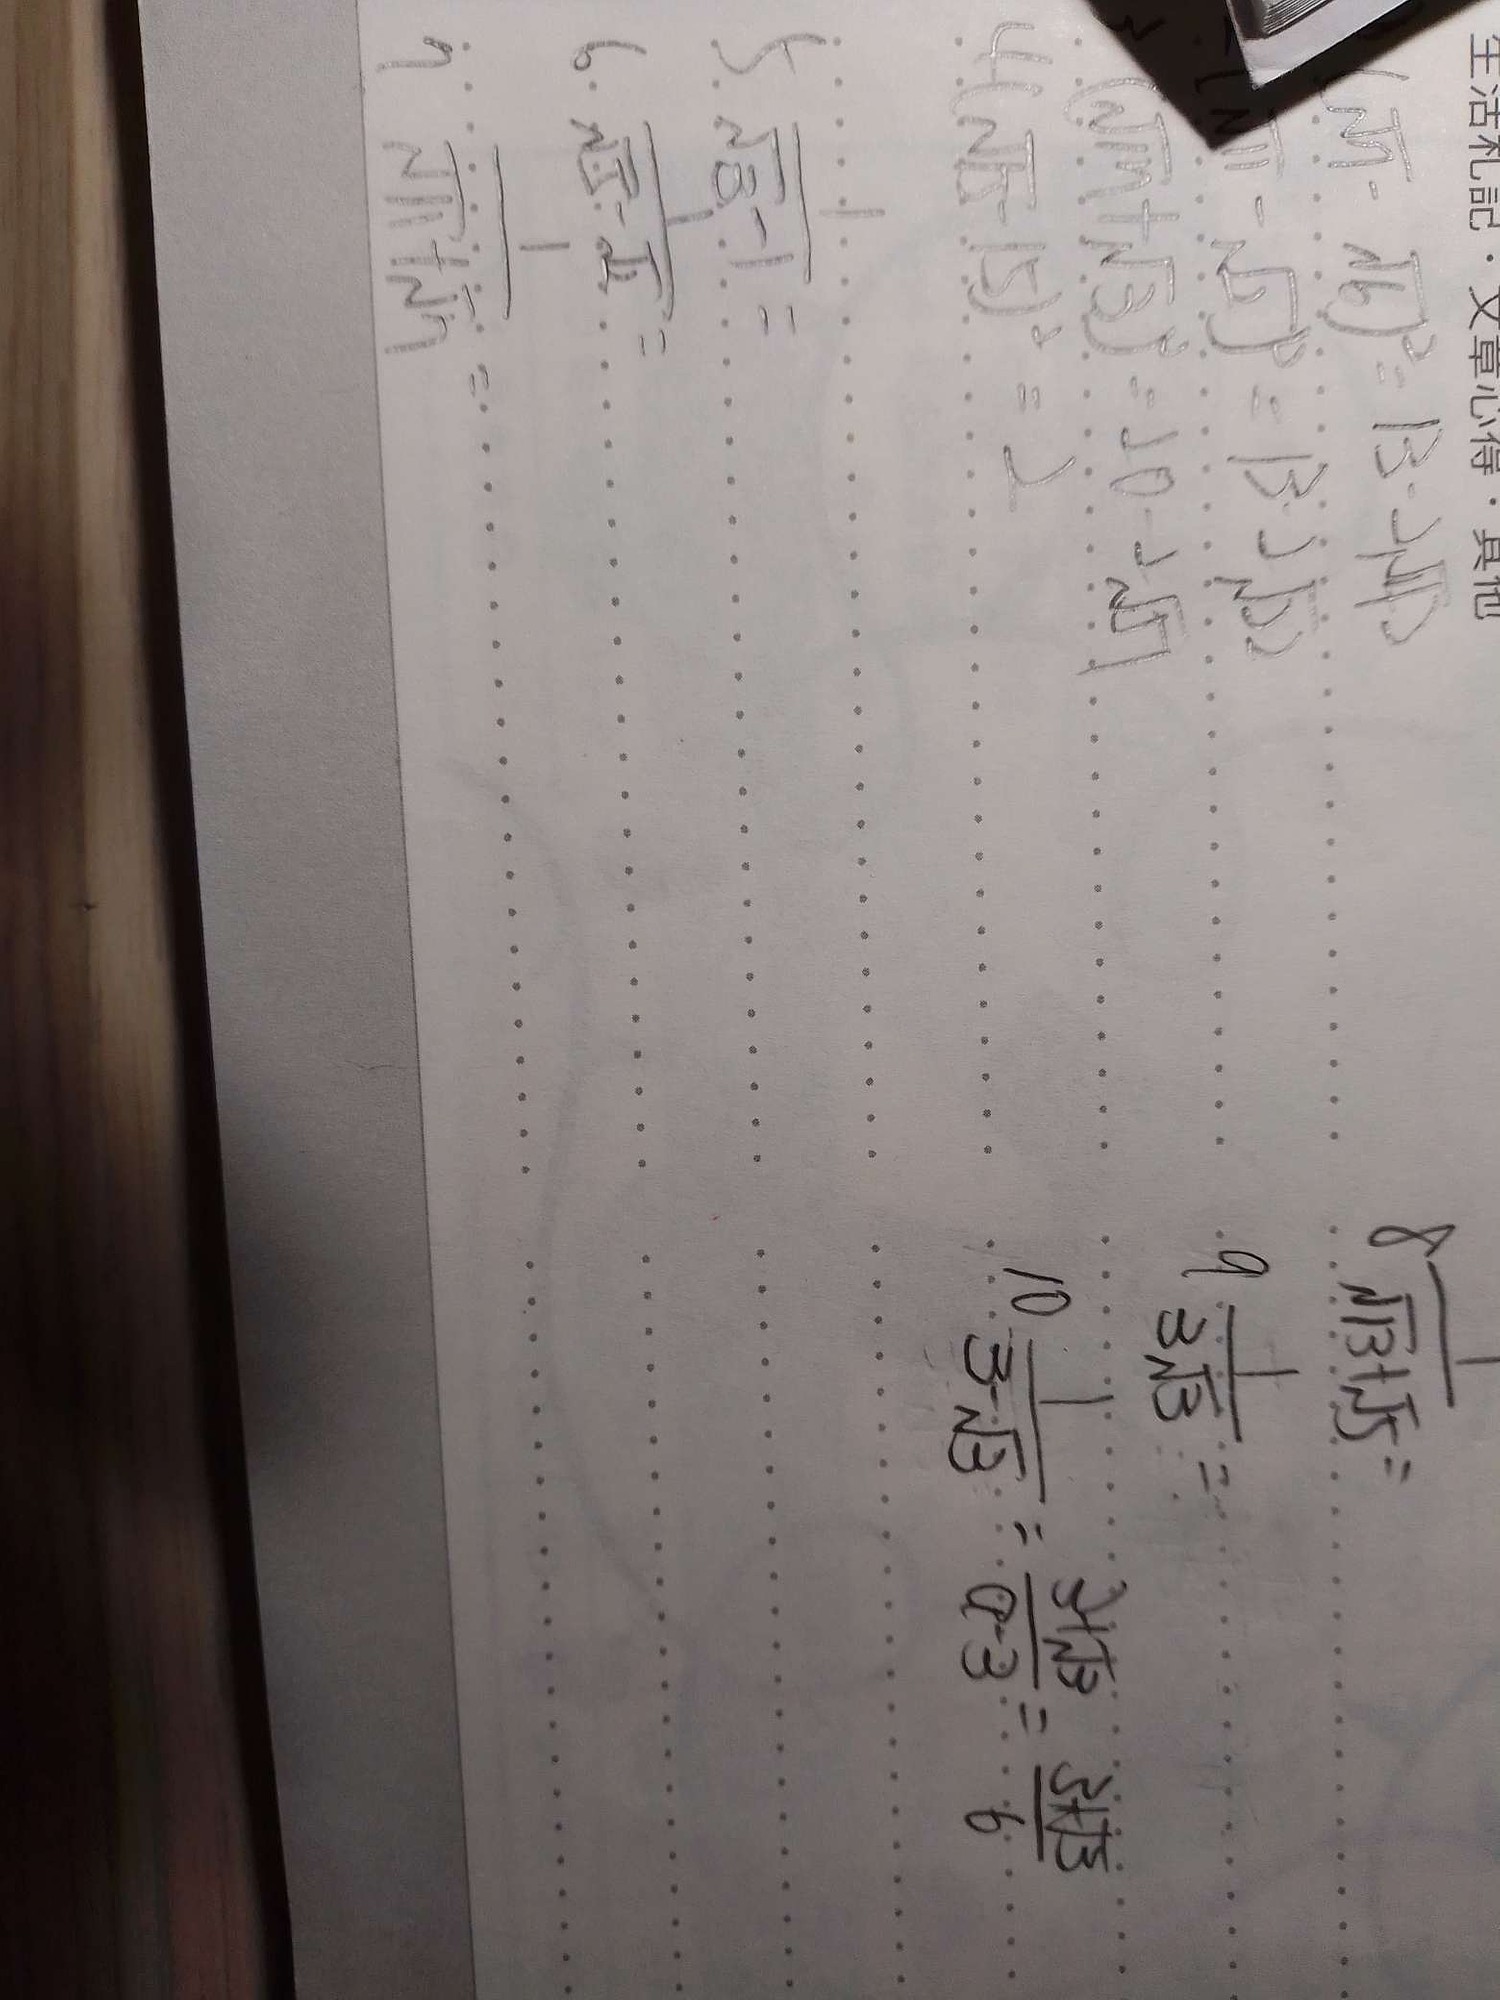 生活札記·文章心得·其他
(√7 - √6)² = 13 - 2√42
- √2)² = 13 - 2√22
(√17 + √3)² = 20 - 2√51
4 (√15 - √15)² = 2
5 1/(√3 - 1) =
6 1/(√5 - √2) =
7 1/(√11 + √7) =
8 1/(√13 + √5) =
9 1/(3√3) =
10 1/(3 - √3) = (3+√3)/(9-3) = (3+√3)/6